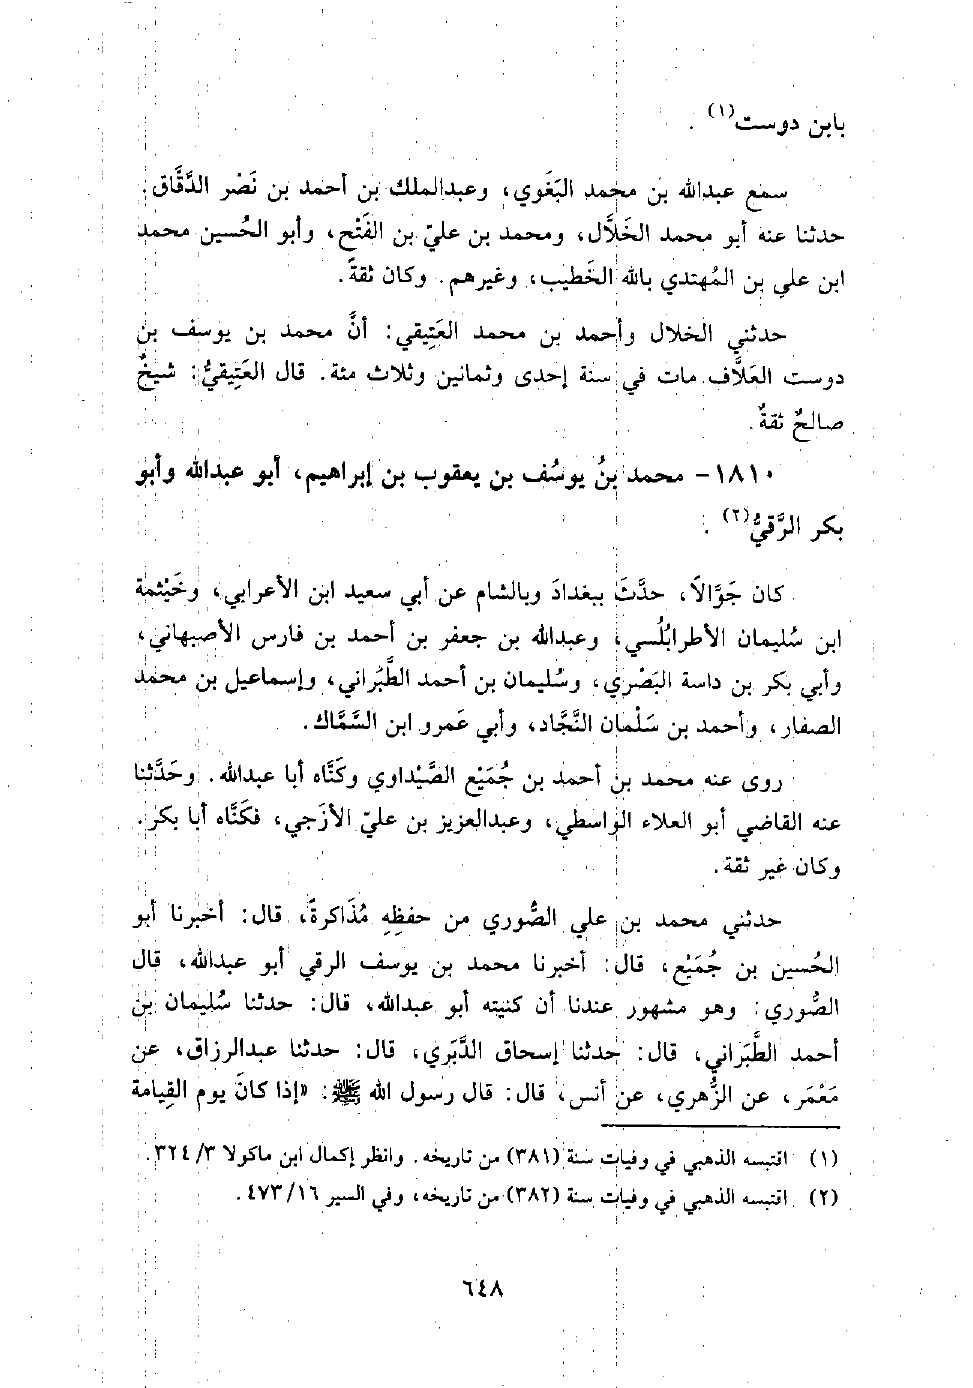 بابن دوست(١) .
سمع عبدالله بن محمد البَغَوي، وعبدالملك بن أحمد بن نَصْر الدَّقَّاق.
حدثنا عنه أبو محمد الخَلَّال، ومحمد بن عليّ بن الفَتْح، وأبو الحُسين محمد
ابن علي بن المُهتدي بالله الخَطيب، وغيرهم. وكان ثقةً.
حدثني الخلال وأحمد بن محمد العَتِيقي: أنَّ محمد بن يوسف بن
دوست العَلَّاف مات في سنة إحدى وثمانين وثلاث مئة. قال العَتِيقيُّ: شيخٌ
صالحٌ ثقةٌ.
١٨١٠- محمد بنُ يوسُف بن يعقوب بن إبراهيم، أبو عبدالله وأبو
بكر الرَّقيُّ(٢) .
كان جَوَّالاً، حدَّثَ ببغدادَ وبالشام عن أبي سعيد ابن الأعرابي، وخَيْثمة
ابن سُليمان الأطرابُلُسي، وعبدالله بن جعفر بن أحمد بن فارس الأصبهاني،
وأبي بكر بن داسة البَصْري، وسُليمان بن أحمد الطَّبَراني، وإسماعيل بن محمد
الصفار، وأحمد بن سَلْمان النَّجَّاد، وأبي عَمرو ابن السَّمَّاك.
روى عنه محمد بن أحمد بن جُمَيْع الصَّيْداوي وكَنَّاه أبا عبدالله. وحَدَّثنا
عنه القاضي أبو العلاء الواسطي، وعبدالعزيز بن عليّ الأزَجي، فكَنَّاه أبا بكر.
وكان غير ثقة.
حدثني محمد بن علي الصُّوري من حفظِهِ مُذَاكرةً، قال: أخبرنا أبو
الحُسين بن جُمَيْع، قال: أخبرنا محمد بن يوسف الرقي أبو عبدالله، قال
الصُّوري: وهو مشهور عندنا أن كنيته أبو عبدالله، قال: حدثنا سُليمان بن
أحمد الطَّبَراني، قال: حدثنا إسحاق الدَّبَري، قال: حدثنا عبدالرزاق، عن
مَعْمَر، عن الزُّهري، عن أنس، قال: قال رسول الله ﷺ: «إذا كانَ يوم القِيامة
(١) اقتبسه الذهبي في وفيات سنة (٣٨١) من تاريخه. وانظر إكمال ابن ماكولا ٣/ ٣٢٤.
(٢) اقتبسه الذهبي في وفيات سنة (٣٨٢) من تاريخه، وفي السير ١٦/ ٤٧٣.
٦٤٨